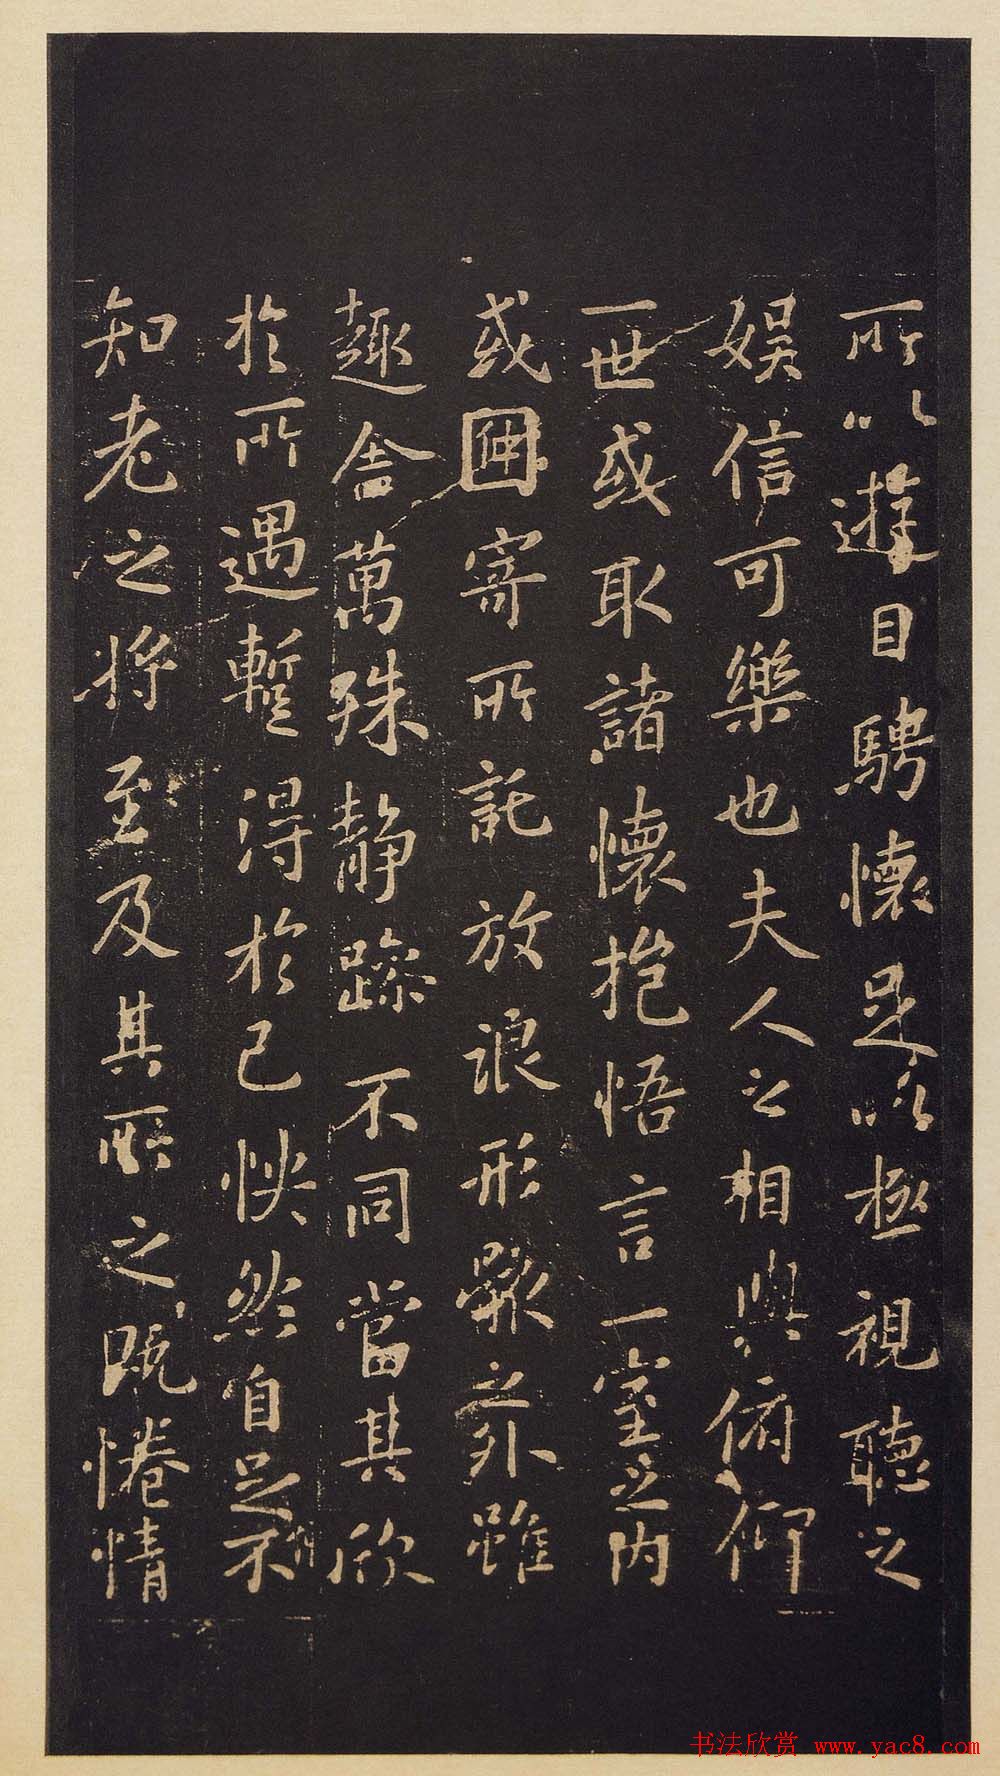 所以遊目騁懷足以極視聽之
娛信可樂也夫人之相與俯仰
一世或取諸懷抱悟言一室之内
或因寄所託放浪形骸之外雖
趣舍萬殊静躁不同當其欣
於所遇蹔得於己怏然自足不
知老之將至及其所之既惓情
书法欣赏 www.yac8.com